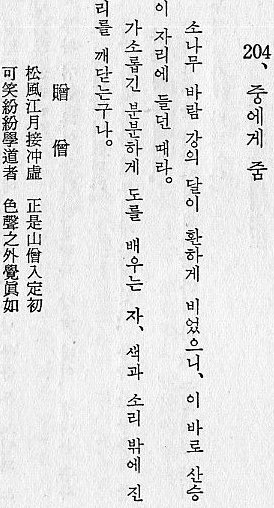 204、중에게 줌
소나무 바람 강의 달이 환하게 비었으니、이 바로 산승
이 자리에 들던 때라。
가소롭긴 분분하게 도를 배우는 자、색과 소리 밖에 진
리를 깨닫는구나。
贈 僧
松風江月接冲虛 正是山僧入定初
可笑紛紛學道者 色聲之外覺眞如